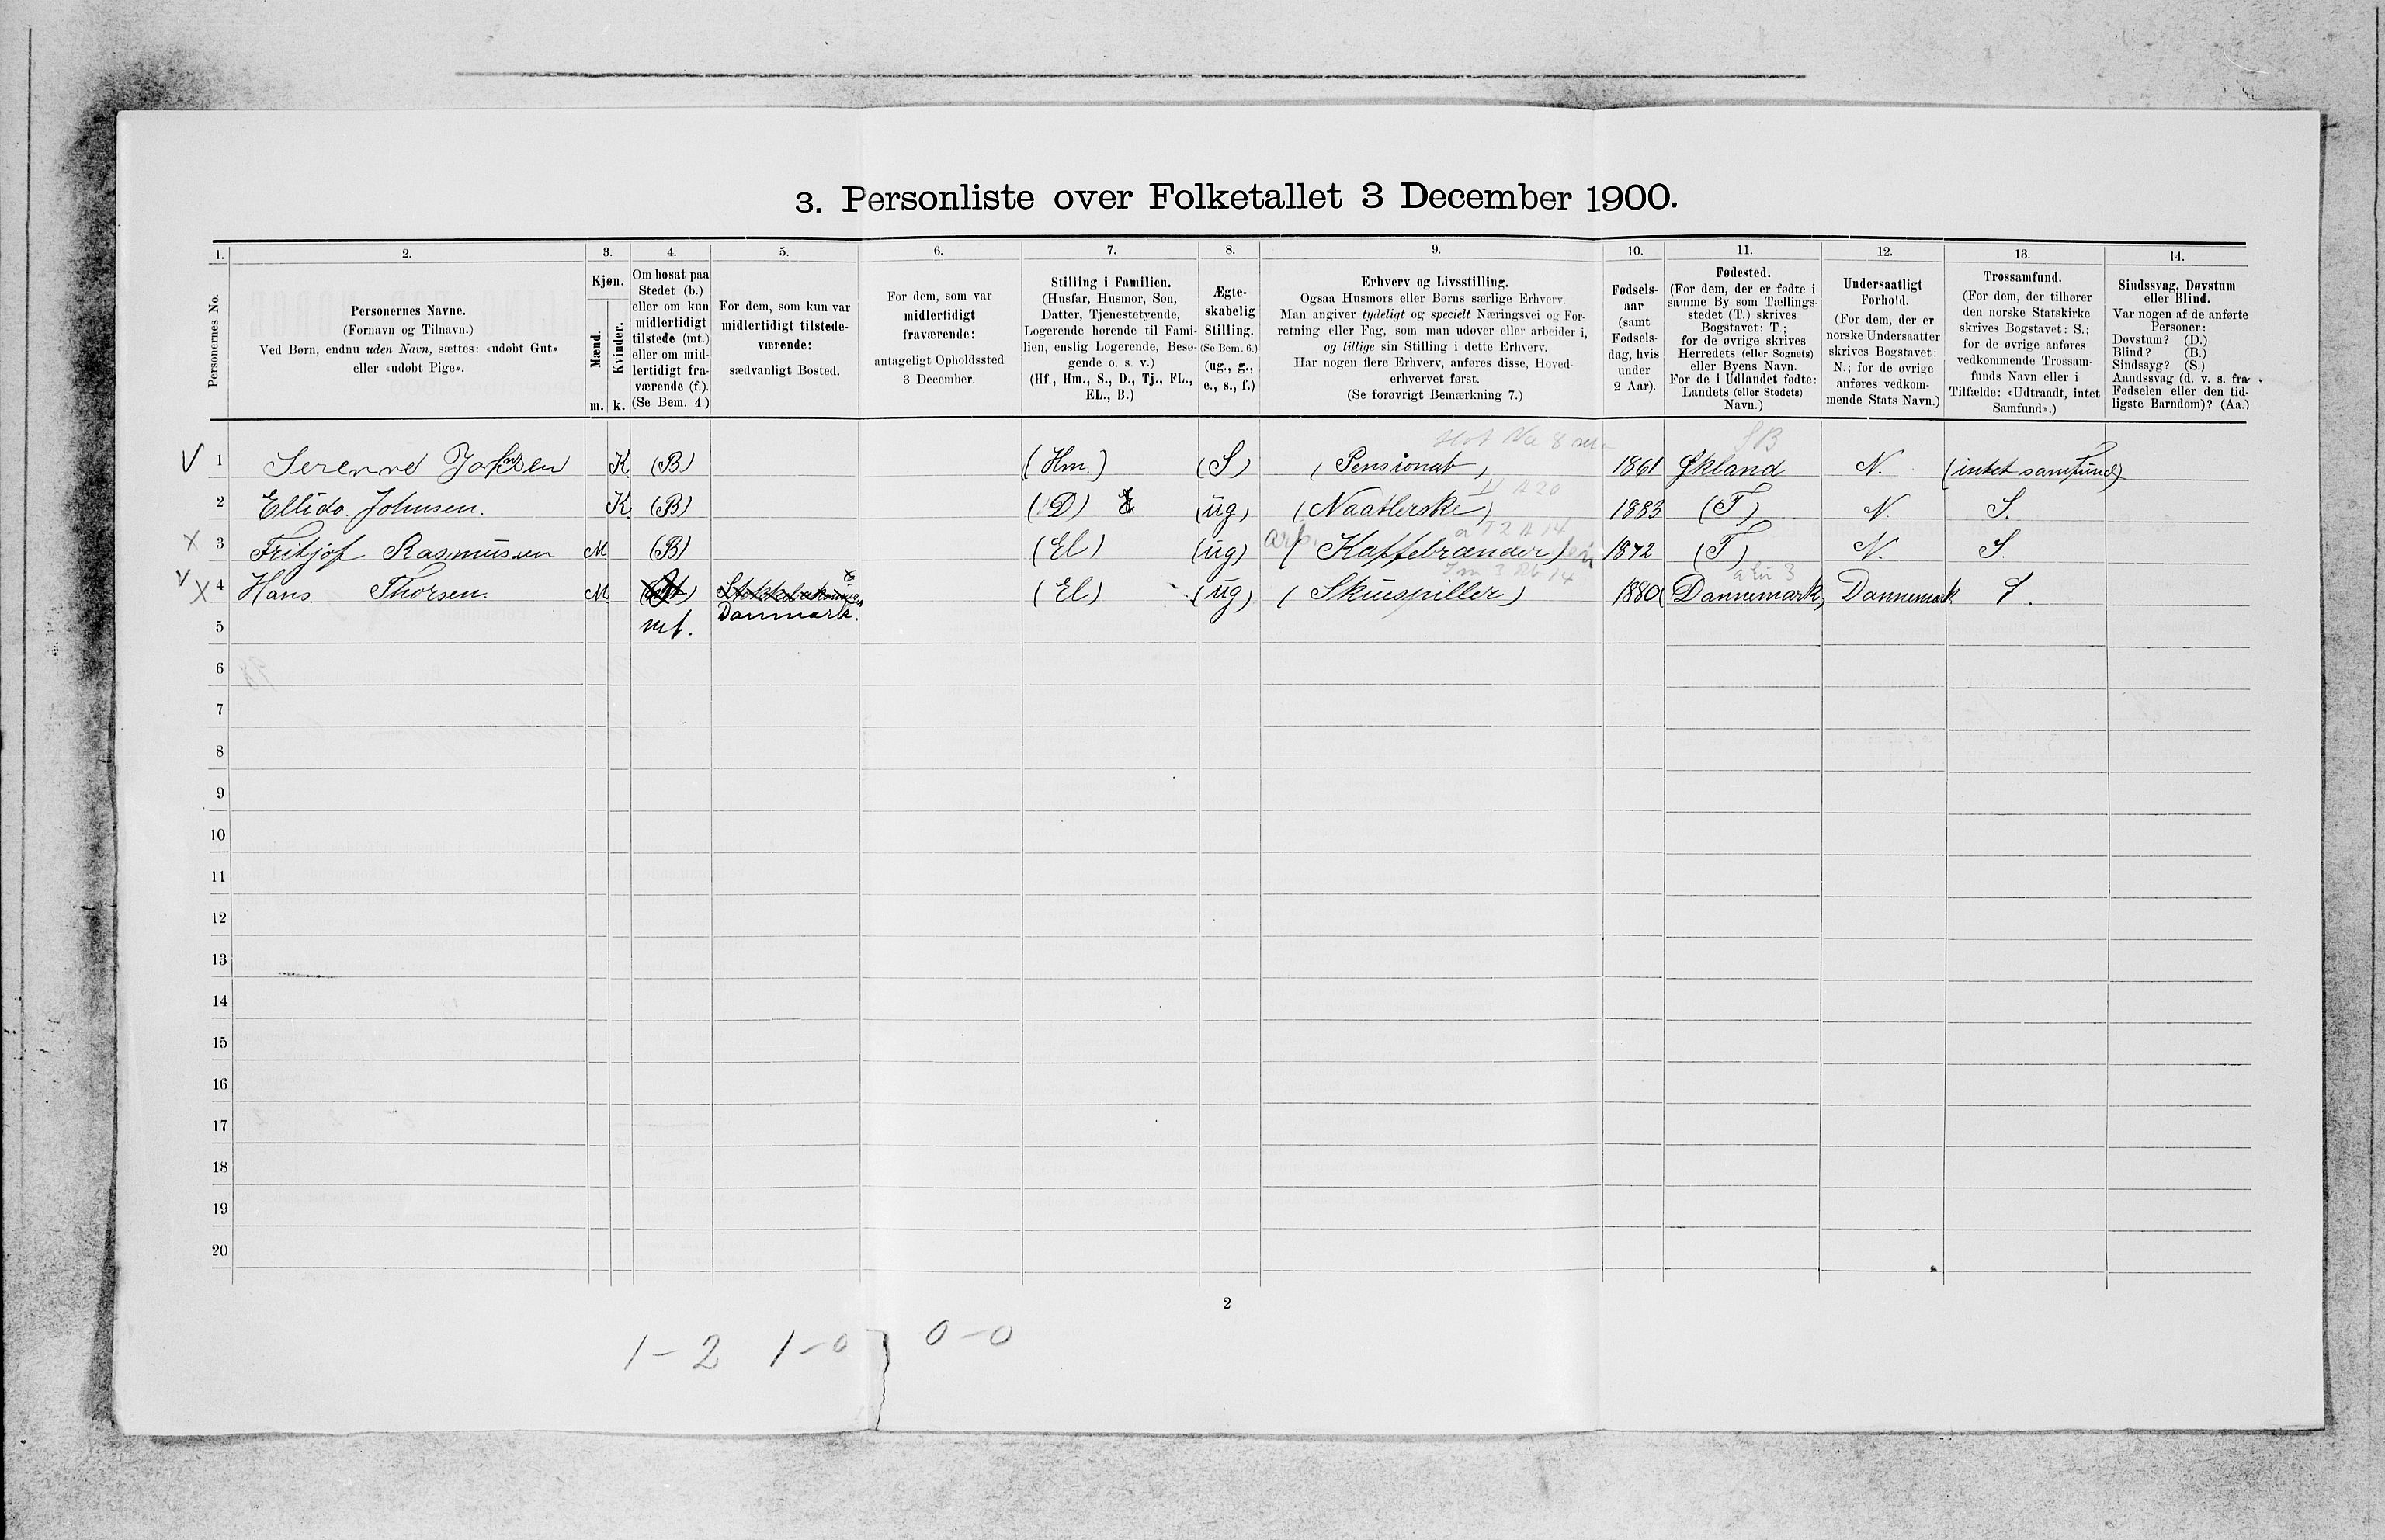 3. Personliste over Folketallet 3 December 1900.
1. 2. 3. 4. 5. 6. 7. 8. 9. 10. 11. 12. 13. 14.
Personernes No.
Personernes Navne.
(Fornavn og Tilnavn.)
Ved Børn, endnu uden Navn, sættes: «udøbt Gut»
eller «udøbt Pige».
Kjøn.
Mænd.
Kvinder.
m. k.
Om bosat paa
Stedet (b.)
eller om kun
midlertidigt
tilstede (mt.)
eller om mid-
lertidigt fra-
værende (f.).
(Se Bem. 4.)
For dem, som kun var
midlertidigt tilstede-
værende:
sædvanligt Bosted.
For dem, som var
midlertidigt
fraværende:
antageligt Opholdssted
3 December.
Stilling i Familien.
(Husfar, Husmor, Søn,
Datter, Tjenestetyende,
Logerende hørende til Fami-
lien, enslig Logerende, Besø-
gende o. s. v.)
(Hf., Hm., S., D., Tj., FL.,
EL., B.)
Ægte-
skabelig
Stilling.
(Se Bem. 6.)
(ug., g.,
e., s., f.)
Erhverv og Livsstilling.
Ogsaa Husmors eller Børns særlige Erhverv.
Man angiver tydeligt og specielt Næringsvei og For-
retning eller Fag, som man udøver eller arbeider i,
og tillige sin Stilling i dette Erhverv.
Har nogen flere Erhverv, anføres disse, Hoved-
erhvervet først.
(Se forøvrigt Bemærkning 7.)
Fødsels-
aar
(samt
Fødsels-
dag, hvis
under
2 Aar).
Fødested.
(For dem, der er fødte i
samme By som Tællings-
stedet (T.) skrives
Bogstavet: T.;
for de øvrige skrives
Herredets (eller Sognets)
eller Byens Navn.
For de i Udlandet fødte:
Landets (eller Stedets)
Navn.)
Undersaatligt
Forhold.
(For dem, der er
norske Undersaatter
skrives Bogstavet:
N.; for de øvrige
anføres vedkom-
mende Stats Navn.)
Trossamfund.
(For dem, der tilhører
den norske Statskirke
skrives Bogstavet: S.;
for de øvrige anføres
vedkommende Trossam-
funds Navn eller i
Tilfælde: «Udtraadt, intet
Samfund».)
Sindssvag, Døvstum
eller Blind.
Var nogen af de anførte
Personer:
Døvstum? (D.)
Blind? (B.)
Sindssyg? (S.)
Aandssvag (d. v. s. fra
Fødselen eller den tid-
ligste Barndom)? (Aa.)
1 K (B) (Hm.) (S) (Pensionat) 1861 Økland N. (intet samfund)
2 Ellida Johnsen. K (B) (D) (ug) (Naatlerske) 1883 (T) N. S.
X 3 Fritjof Rasmussen M (B) (El) (ug) (Kaffebrænder) 1872 (T) N. S.
X 4 Hans Thorsen. M Danmark. (El) (ug) (Skuespiller) 1880 (Dannemark) Dannemark S.
5 mt.
6
7
8
9
10
11
12
13
14
15
16
17
18
19
20
2
1-2 1-0 0-0